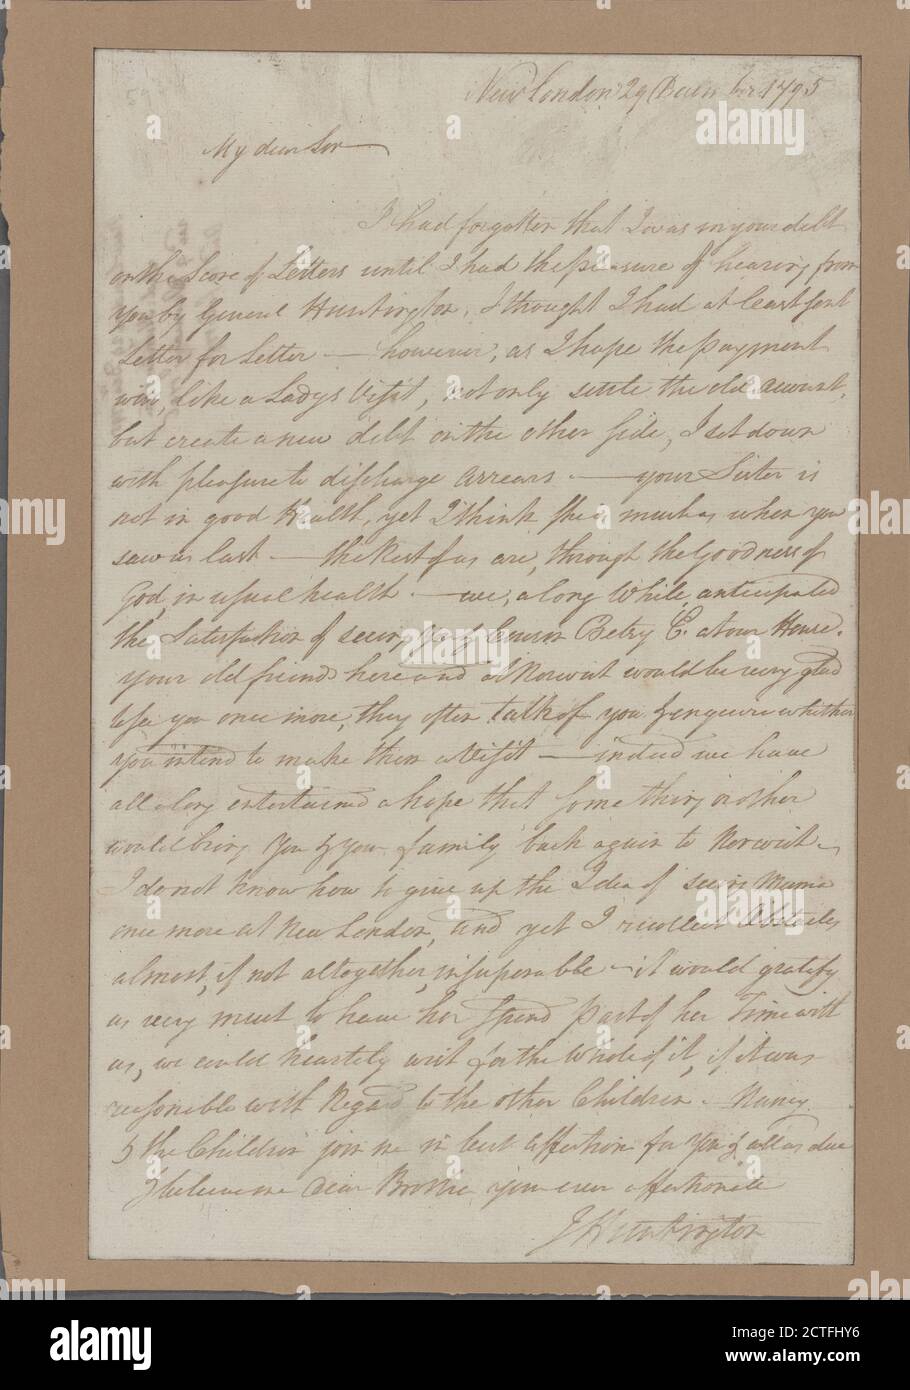 New London 29 Decem ber 1795
My dear Sir
I had forgotten that I was in your debt
on the Score of Letters until I had the pleasure of hearing from
you by General Huntington, I thought I had at least sent
Letter for Letter — however, as I hope the payment
will, like a Ladys Visit, not only settle the old account,
but create a new debt on the other Side, I set down
with pleasure to discharge arrears — your Sister is
not in good Health, yet I think she is much as when you
saw us last — the Rest of us are, through the Goodness of
God, in usual health — we, along While, anticipated
the Satisfaction of seeing you & Cousin Betsy C. at our House.
your old friends here and at Norwich would be very glad
to see you once more, they often talk of you & enquire whether
you intend to make them a Visit — indeed we have
all along entertained a hope that some thing or other
would bring you & your family back again to Norwich —
I do not know how to give up the Idea of seeing Mama
once more at New London, and yet I recollect Obstacles
almost, if not altogether, insuperable — it would gratify
us very much to have her spend Part of her Time with
us, we could heartily wish for the Whole of it, if it was
reasonable with Regard to the other Children — Nancy
& the Children join me in best affection for you & all as due
I believe me dear Brother your ever affectionate
J Huntington
alamy
alamy
alamy
alamy
Image ID: 2CTFHY6
www.alamy.com